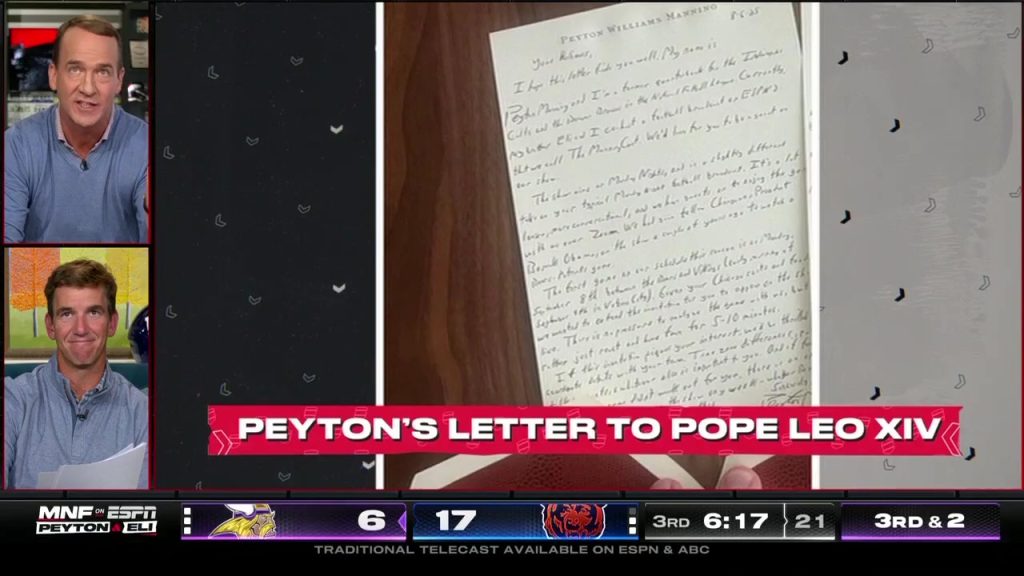 PEYTON WILLIAMS MANNING
8-6-25
Your Holiness,
I hope this letter finds you well. My name is
Peyton Manning and I'm a former quarterback for the Indianapolis
Colts and the Denver Broncos in the National Football League. Currently,
my brother Eli and I co-host a football broadcast on ESPN2
that we call The ManningCast. We'd love for you to be a guest on
our show.
The show airs on Monday Nights, and is a slightly different
take on your typical Monday Night Football broadcast. It's a lot
looser, more conversational, and we have guests on to enjoy the game
with us over Zoom. We had your fellow Chicagoan President
Barack Obama on the show a couple of years ago to watch a
Broncos Patriots game.
The first game on our schedule this season is on Monday,
September 8th between the Bears and Vikings (early morning of
September 9th in Vatican City). Given your Chicago roots and
we wanted to extend the invitation for you to appear on the show
live. There is no pressure to analyze the game with us, but
rather just react and have fun for 5-10 minutes.
If this invitation piques your interest, we'd be thrilled
to
PEYTON'S LETTER TO POPE LEO XIV
MNF ON ESPN
PEYTON ELI
6
17
3RD 6:17 21
3RD & 2
TRADITIONAL TELECAST AVAILABLE ON ESPN & ABC